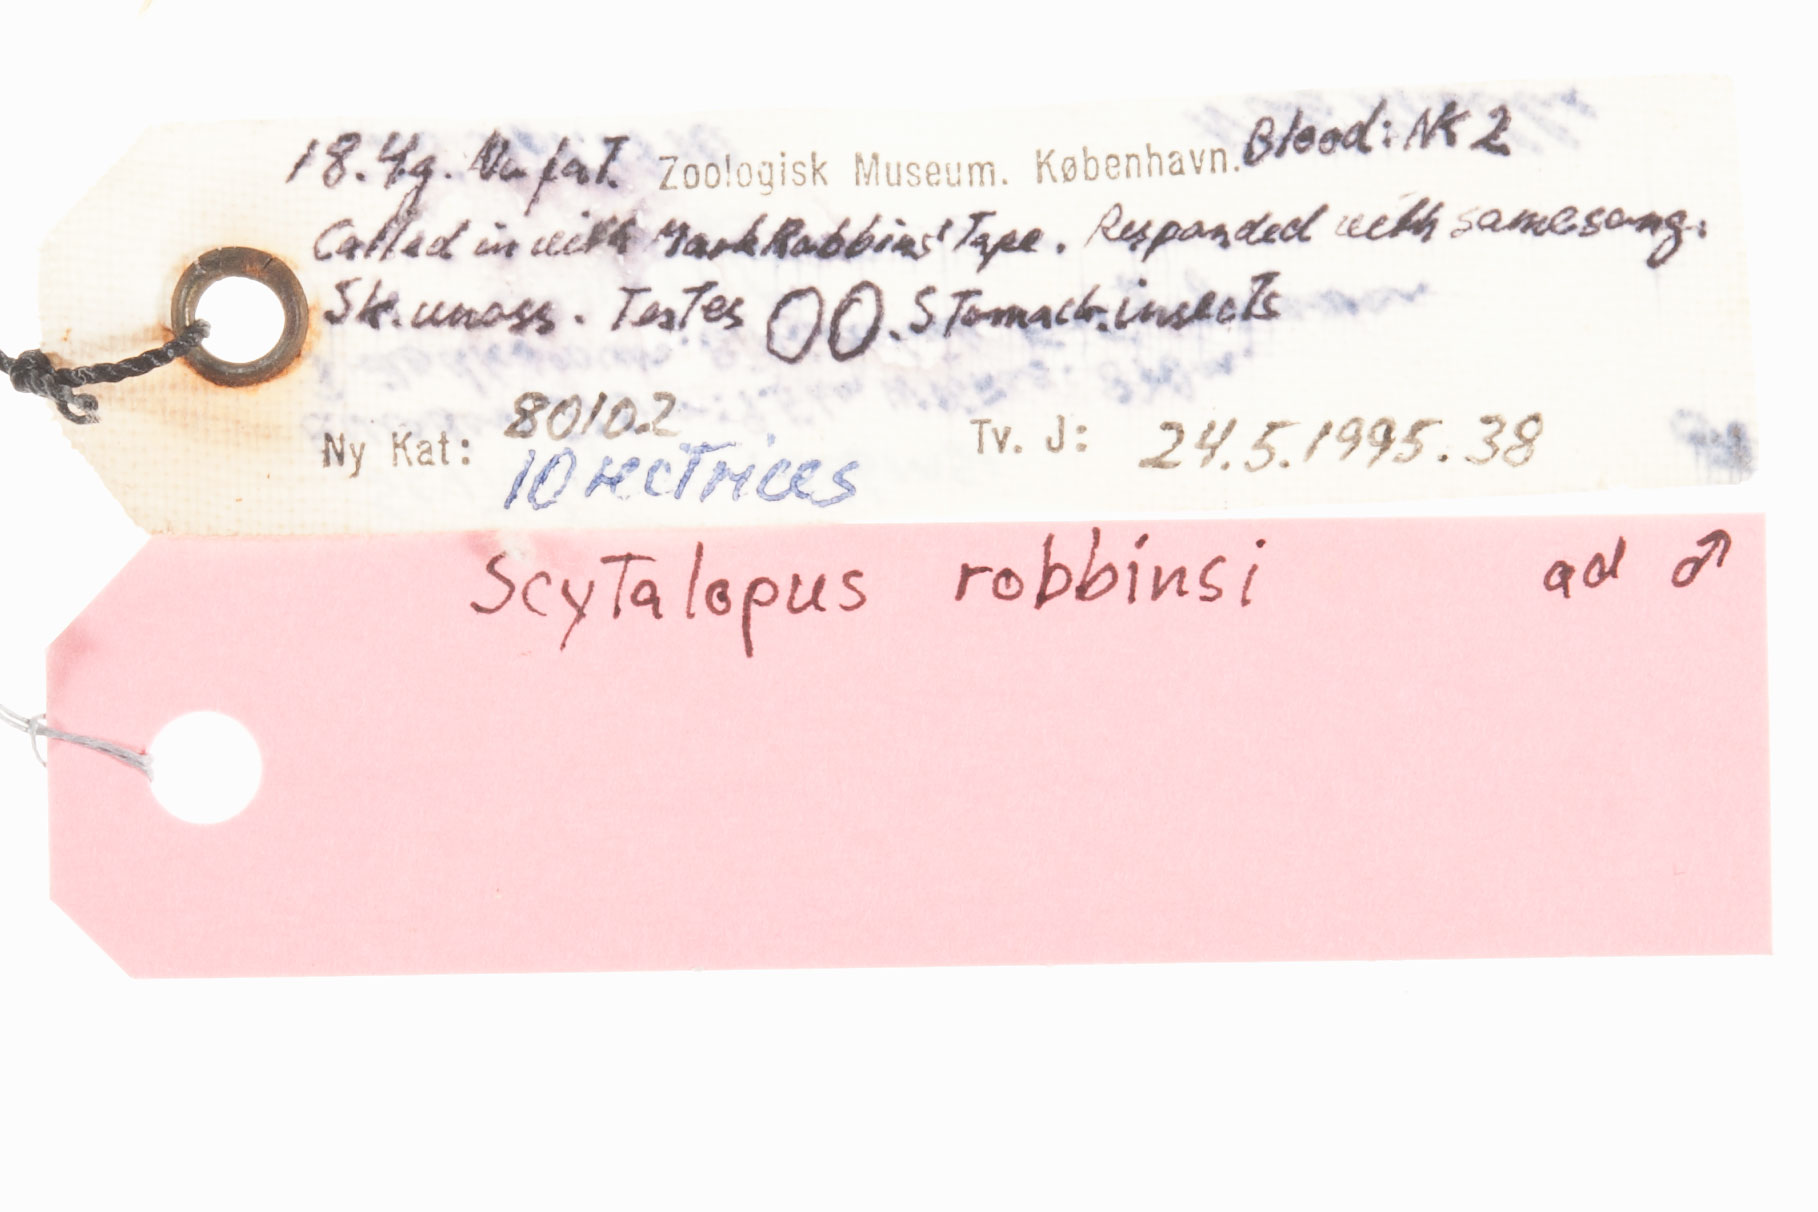 18.4g. No fat. Zoologisk Museum. København. Blood: NK 2
Called in with Mark Robbins' Tape. Responded with same song.
Sk. unoss. Testes OO. Stomach: insects
Ny Kat: 80102 Tv. J: 24.5.1995.38
10 rectrices
Scytalopus robbinsi ad ♂